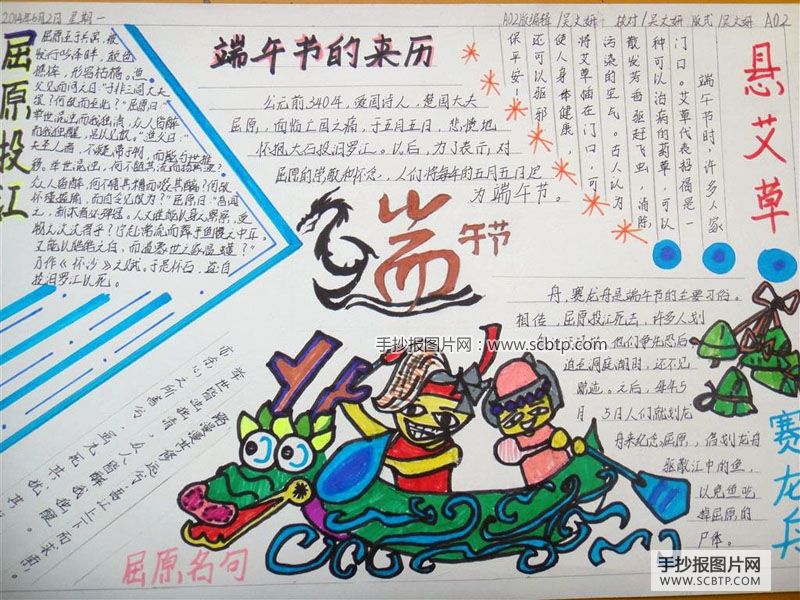 2014年6月2日 星期一
A02版编辑/吴文妍 校对/吴文妍 版式/吴文妍 A02
屈原投江
屈原至于江滨,被
发行吟泽畔,颜色
憔悴,形容枯槁。渔
父见而问之曰:“子非三闾大夫
欤?何故而至此?”屈原曰:
举世混浊而我独清,众人皆醉
而我独醒,是以见放。”渔父曰:“
夫圣人者,不凝滞于物,而能与世推
移。举世混浊,何不随其流而扬其波?
众人皆醉,何不餔其糟而啜其醨?何故
怀瑾握瑜,而自令见放为?”屈原曰:“吾闻
乃作《怀沙》之赋。于是怀石,遂自
投汨罗江以死。
端午节的来历
公元前340年,爱国诗人,楚国大夫
屈原,面临亡国之痛,于五月五日,悲愤地
怀抱大石投汨罗江。以后,为了表示对
屈原的崇敬和怀念,人们将每年的五月五日定
为端午节。
悬艾草
端午节时,许多人家
门口。艾草代表招福是一
种可以治病的药草,可以
散发芳香驱赶飞虫,消除
污染的空气。古人认为
将艾草插在门口,可
使人身体健康,
还可以驱邪
保平安!
端
午节
舟,赛龙舟是端午节的主要习俗。
相传,屈原投江死去,许多人划
他们争先恐后
追至洞庭湖时,还不见
踪迹。之后,每年5
月5日人们就划龙
舟来纪念屈原,借划龙舟
驱散江中的鱼,
以免鱼吃
掉屈原的
尸体。
赛龙舟
手抄报图片网:www.scbtp.com
屈原名句
手抄报图片网
WWW.SCBTP.COM